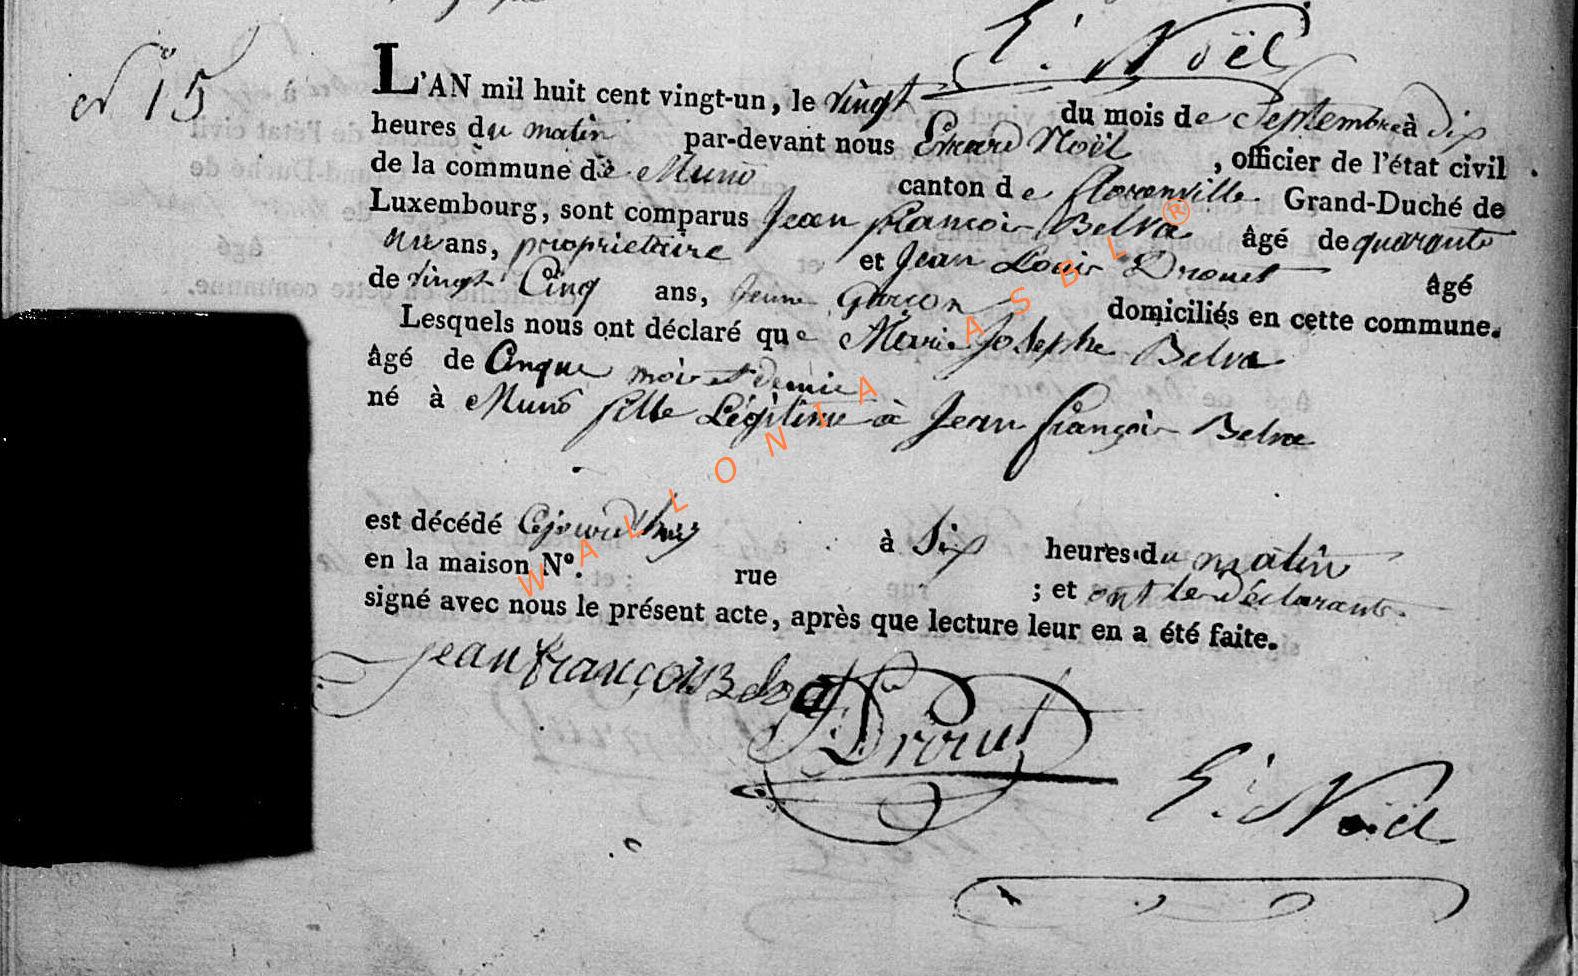 E. Noël
N° 15
L'AN mil huit cent vingt-un, le vingt du mois de Septembre à dix
heures du matin par-devant nous Evrard Noël, officier de l'état civil
de la commune de Muno canton de florenville Grand-Duché de
Luxembourg, sont comparus Jean françois Belva âgé de quarante
ans, proprietaire et Jean Louis Drouet âgé
de vingt Cinq ans, jeune Garçon domiciliés en cette commune.
Lesquels nous ont déclaré que Marie Josephe Belva
âgé de Cinque mois et demie
né à Muno fille Légitime à Jean françois Belva
est décédé Cejourd'huy à Six heures du matin
en la maison N°. rue ; et ont les Déclarants
signé avec nous le présent acte, après que lecture leur en a été faite.
jean françois Belva
Drouet
E. Noël
WALLONIA ASBL ®